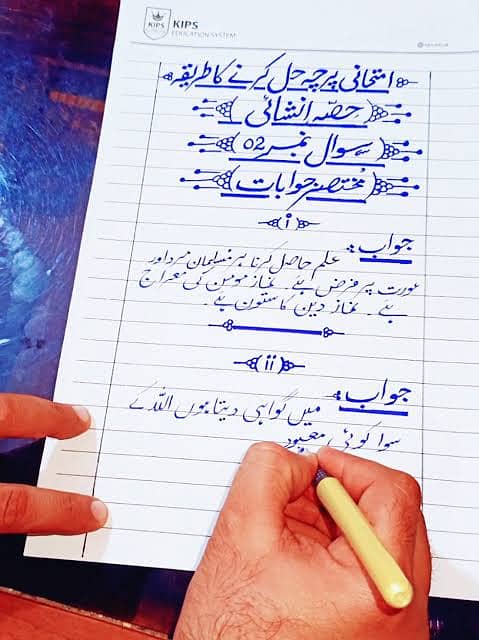 KIPS
KIPS
EDUCATION SYSTEM
امتحانی پرچہ حل کرنے کا طریقہ
(حصّہ انشائی)
(سوال نمبر 02)
(مختصر جوابات)
(i)
جواب: علم حاصل کرنا ہر مسلمان مرد اور
عورت پر فرض ہے۔ نماز مومن کی معراج
ہے۔ نماز دین کا ستون ہے۔
(ii)
جواب: میں گواہی دیتا ہوں اللہ کے
سوا کوئی معبود